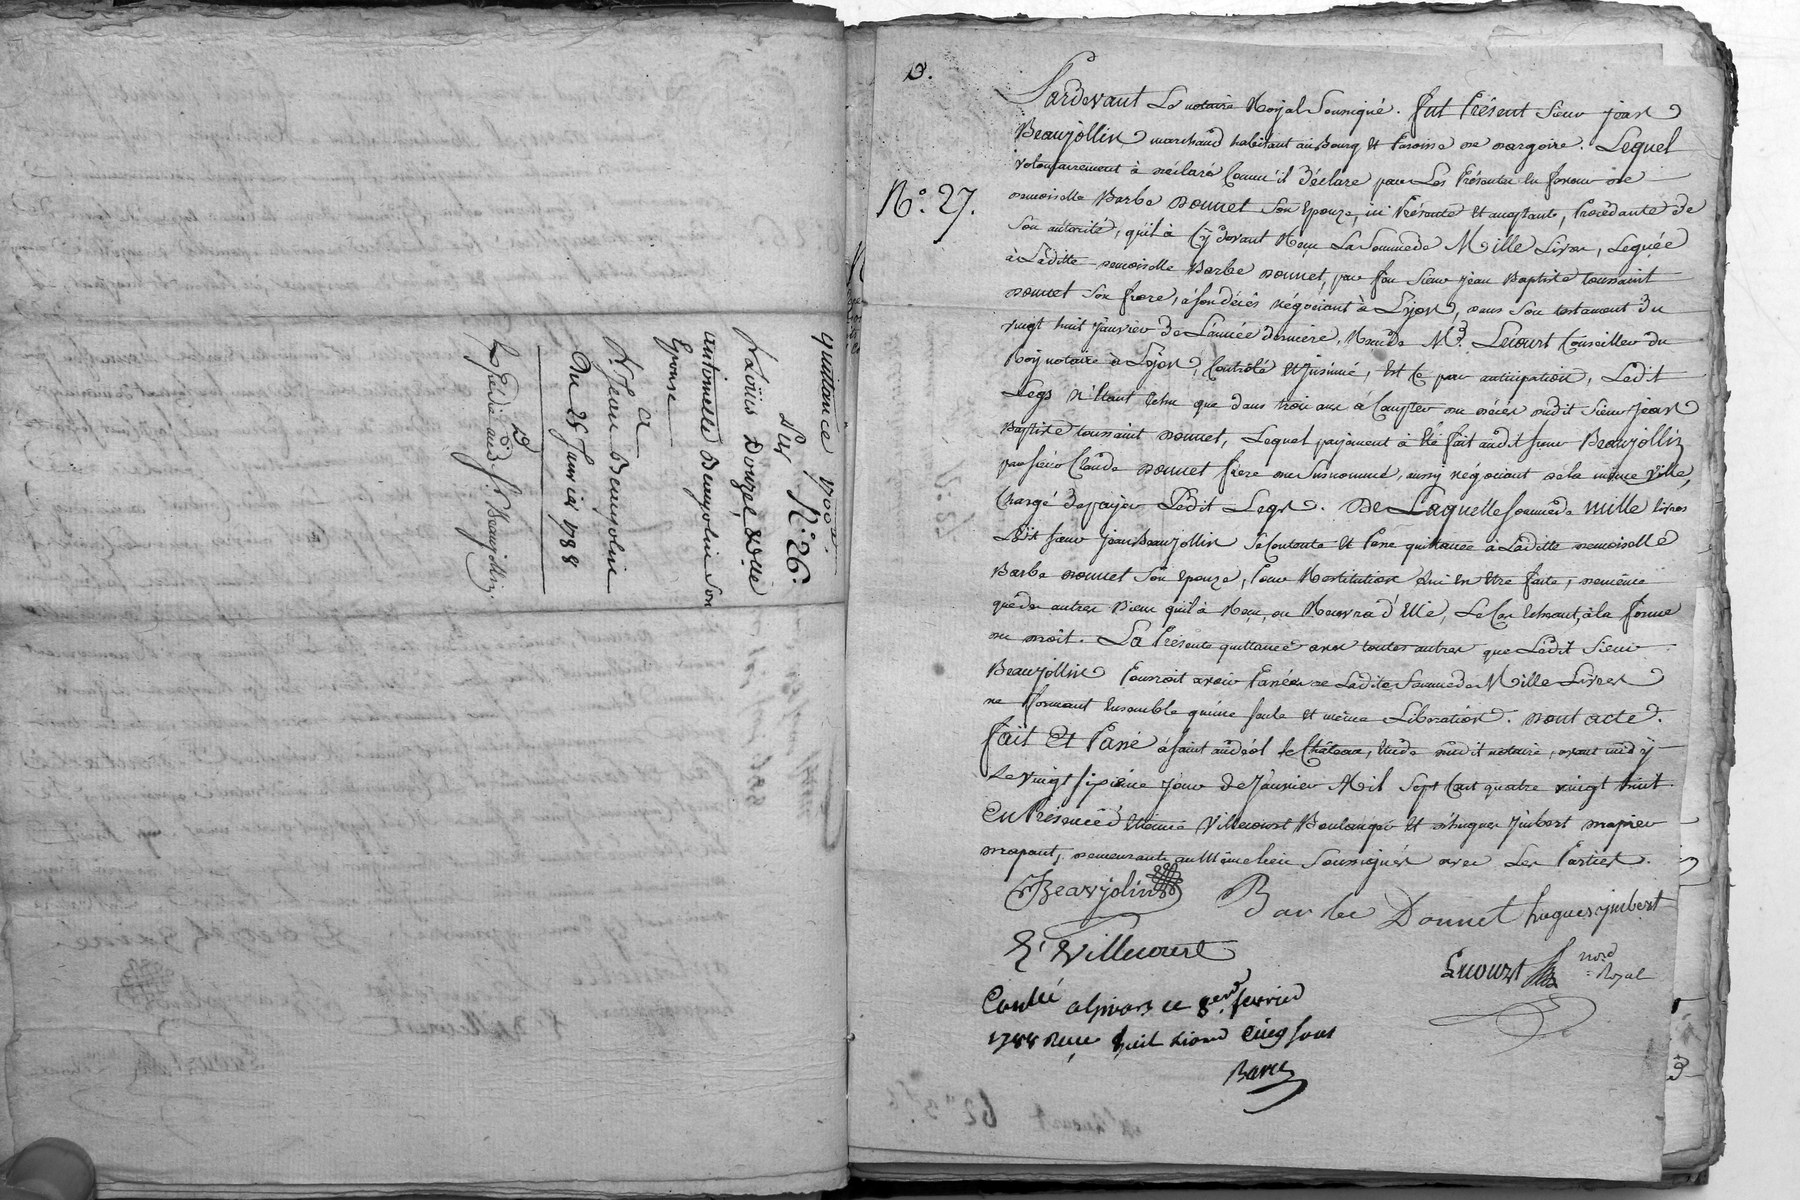 quittance 1700#
N.° 26.
Par
Louiis Donzel, & D.lle
antoinette Beaujolin Son
Epouse
a
S.r Jean Beaujolin
Du 25 Janvier 1788
D
Expédié aud. S.r Beaujollin.
D.
N.° 27.
Pardevant Le notaire Royal Soussigné. fut Présent Sieur jean
Beaujollin marchand habitant au Bourg et Paroisse de dargoire. Lequel
volontairement à déclaré Comme il déclare par Les Présentes en faveur de
demoiselle Barbe donnet Son Epouze, ici Présente et acceptante, Procédante de
Son autorité, qu'il à Cÿ devant Reçu La Somme de Mille Livres, Leguée
à Laditte demoiselle Barbe donnet, par feu Sieur jean Baptiste toussaint
donnet Son frere, à son décès négociant à Lÿon, dans Son testament du
vingt huit janvier de L'année derniere, Reçu de M.e Lecourt Conseiller du
Roy notaire à Lÿon, Controlé et insinué, Et Ce par anticipation, Ledit
Legs n'étant Echu que dans trois ans à Compter du décès dudit Sieur jean
Baptiste toussaint donnet, Lequel payement à été fait audit sieur Beaujollin
par sieur Claude donnet frere du Susnommé, aussy négociant de la même ville,
Chargé de payer Ledit Legs. De Laquelle somme de mille livres
Ledit sieur jean Beaujollin Se Contente et Passe quittance à Laditte demoiselle
Barbe donnet Son Epouze, Pour Restitution Lui En être faite, de même
que des autres Biens qu'il à Reçu, ou Recevra d'Elle, Le Cas Echeant, à la forme
du droit. La Présente quittance avec toutes autres que Ledit Sieur
Beaujollin Pourroit avoir Passées de Ladite Somme de Mille Livres
ne formant Ensemble qu'une Seule et même Libération. dont acte.
fait Et Passé à Saint andéol le Château, Etude dudit notaire, avant midÿ
Le vingt sixieme jour de janvier Mil Sept Cent quatre vingt huit
En Présence d'Etienne Villecourt Boulanger et d'hugues jmbert
demeurants au Même lieu Soussignés avec Les Parties.
Beaujolin
Barbe Donnet
hugues jmbert
E. Villecourt
Lecourt
no.re Royal
Con.lé a givors le 8.e fevrier
1788 Reçu huit livres Cinq sous